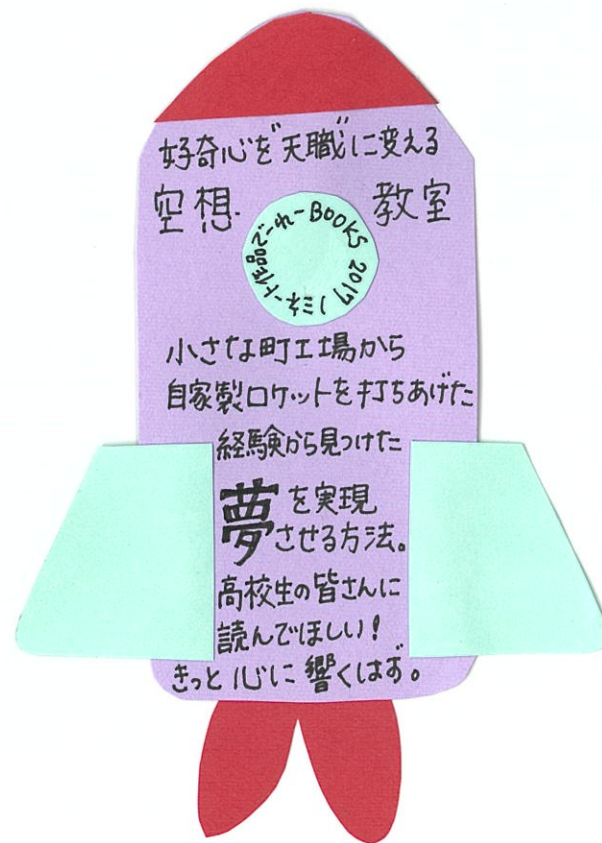 好奇心を"天職"に変える
空想教室
でーれーBOOKS 2017 ノミネート作品
小さな町工場から
自家製ロケットを打ちあげた
経験から見つけた
夢を実現
させる方法。
高校生の皆さんに
読んでほしい!
きっと心に響くはず。